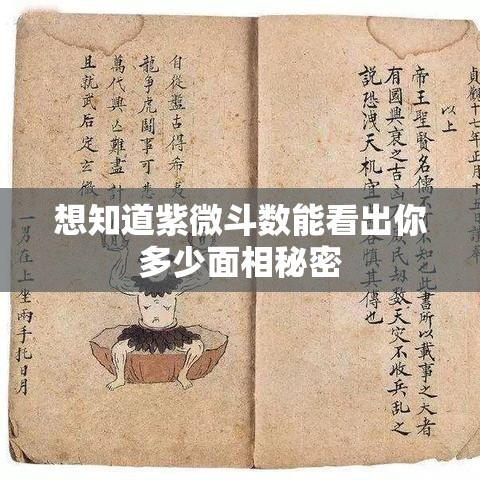 想知道紫微斗数能看出你
多少面相秘密
貞觀十七年正月十五日謹
以上
帝王聖賢名儒不不也此書所以載事之大者
有國興衰之吉民劫數天災不收兵亂之
說恐洩天机宜慎其傳也
自從盤古得希
龍爭虎鬪事可
萬代興亾難盡計
且就武后定玄微
一男在上坐兩手托日月